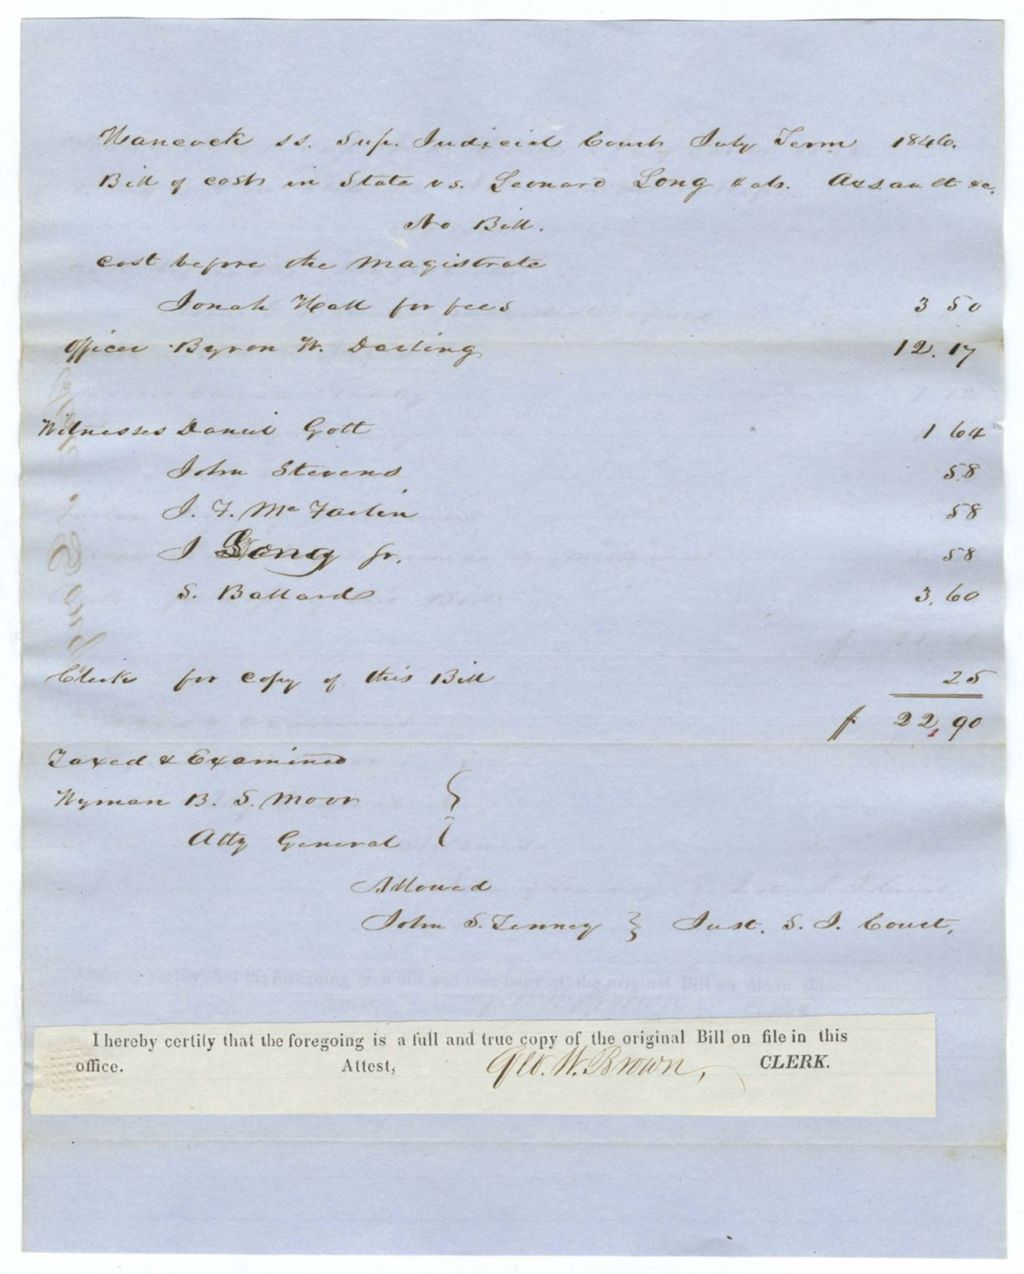 Hancock ss. Sup. Judicial Court July Term 1846.
Bill of costs in State vs. Leonard Long & als. Assault &c.
No Bill.
cost before the Magistrate
Jonah Hall for fees 3 50
Officer Byron W. Darling 12.17
Witnesses Daniel Gott 1 64
John Stevens 58
J. F. McFarlin 58
J Long Jr. 58
S. Ballard 3.60
Clerk for copy of this Bill 25
$ 22,90
Taxed & Examined
Wyman B. S. Moor
Atty General
Allowed
John S. Tenney } Just. S. J. Court,
I hereby certify that the foregoing is a full and true copy of the original Bill on file in this
office. Attest, Geo. W. Brown, CLERK.